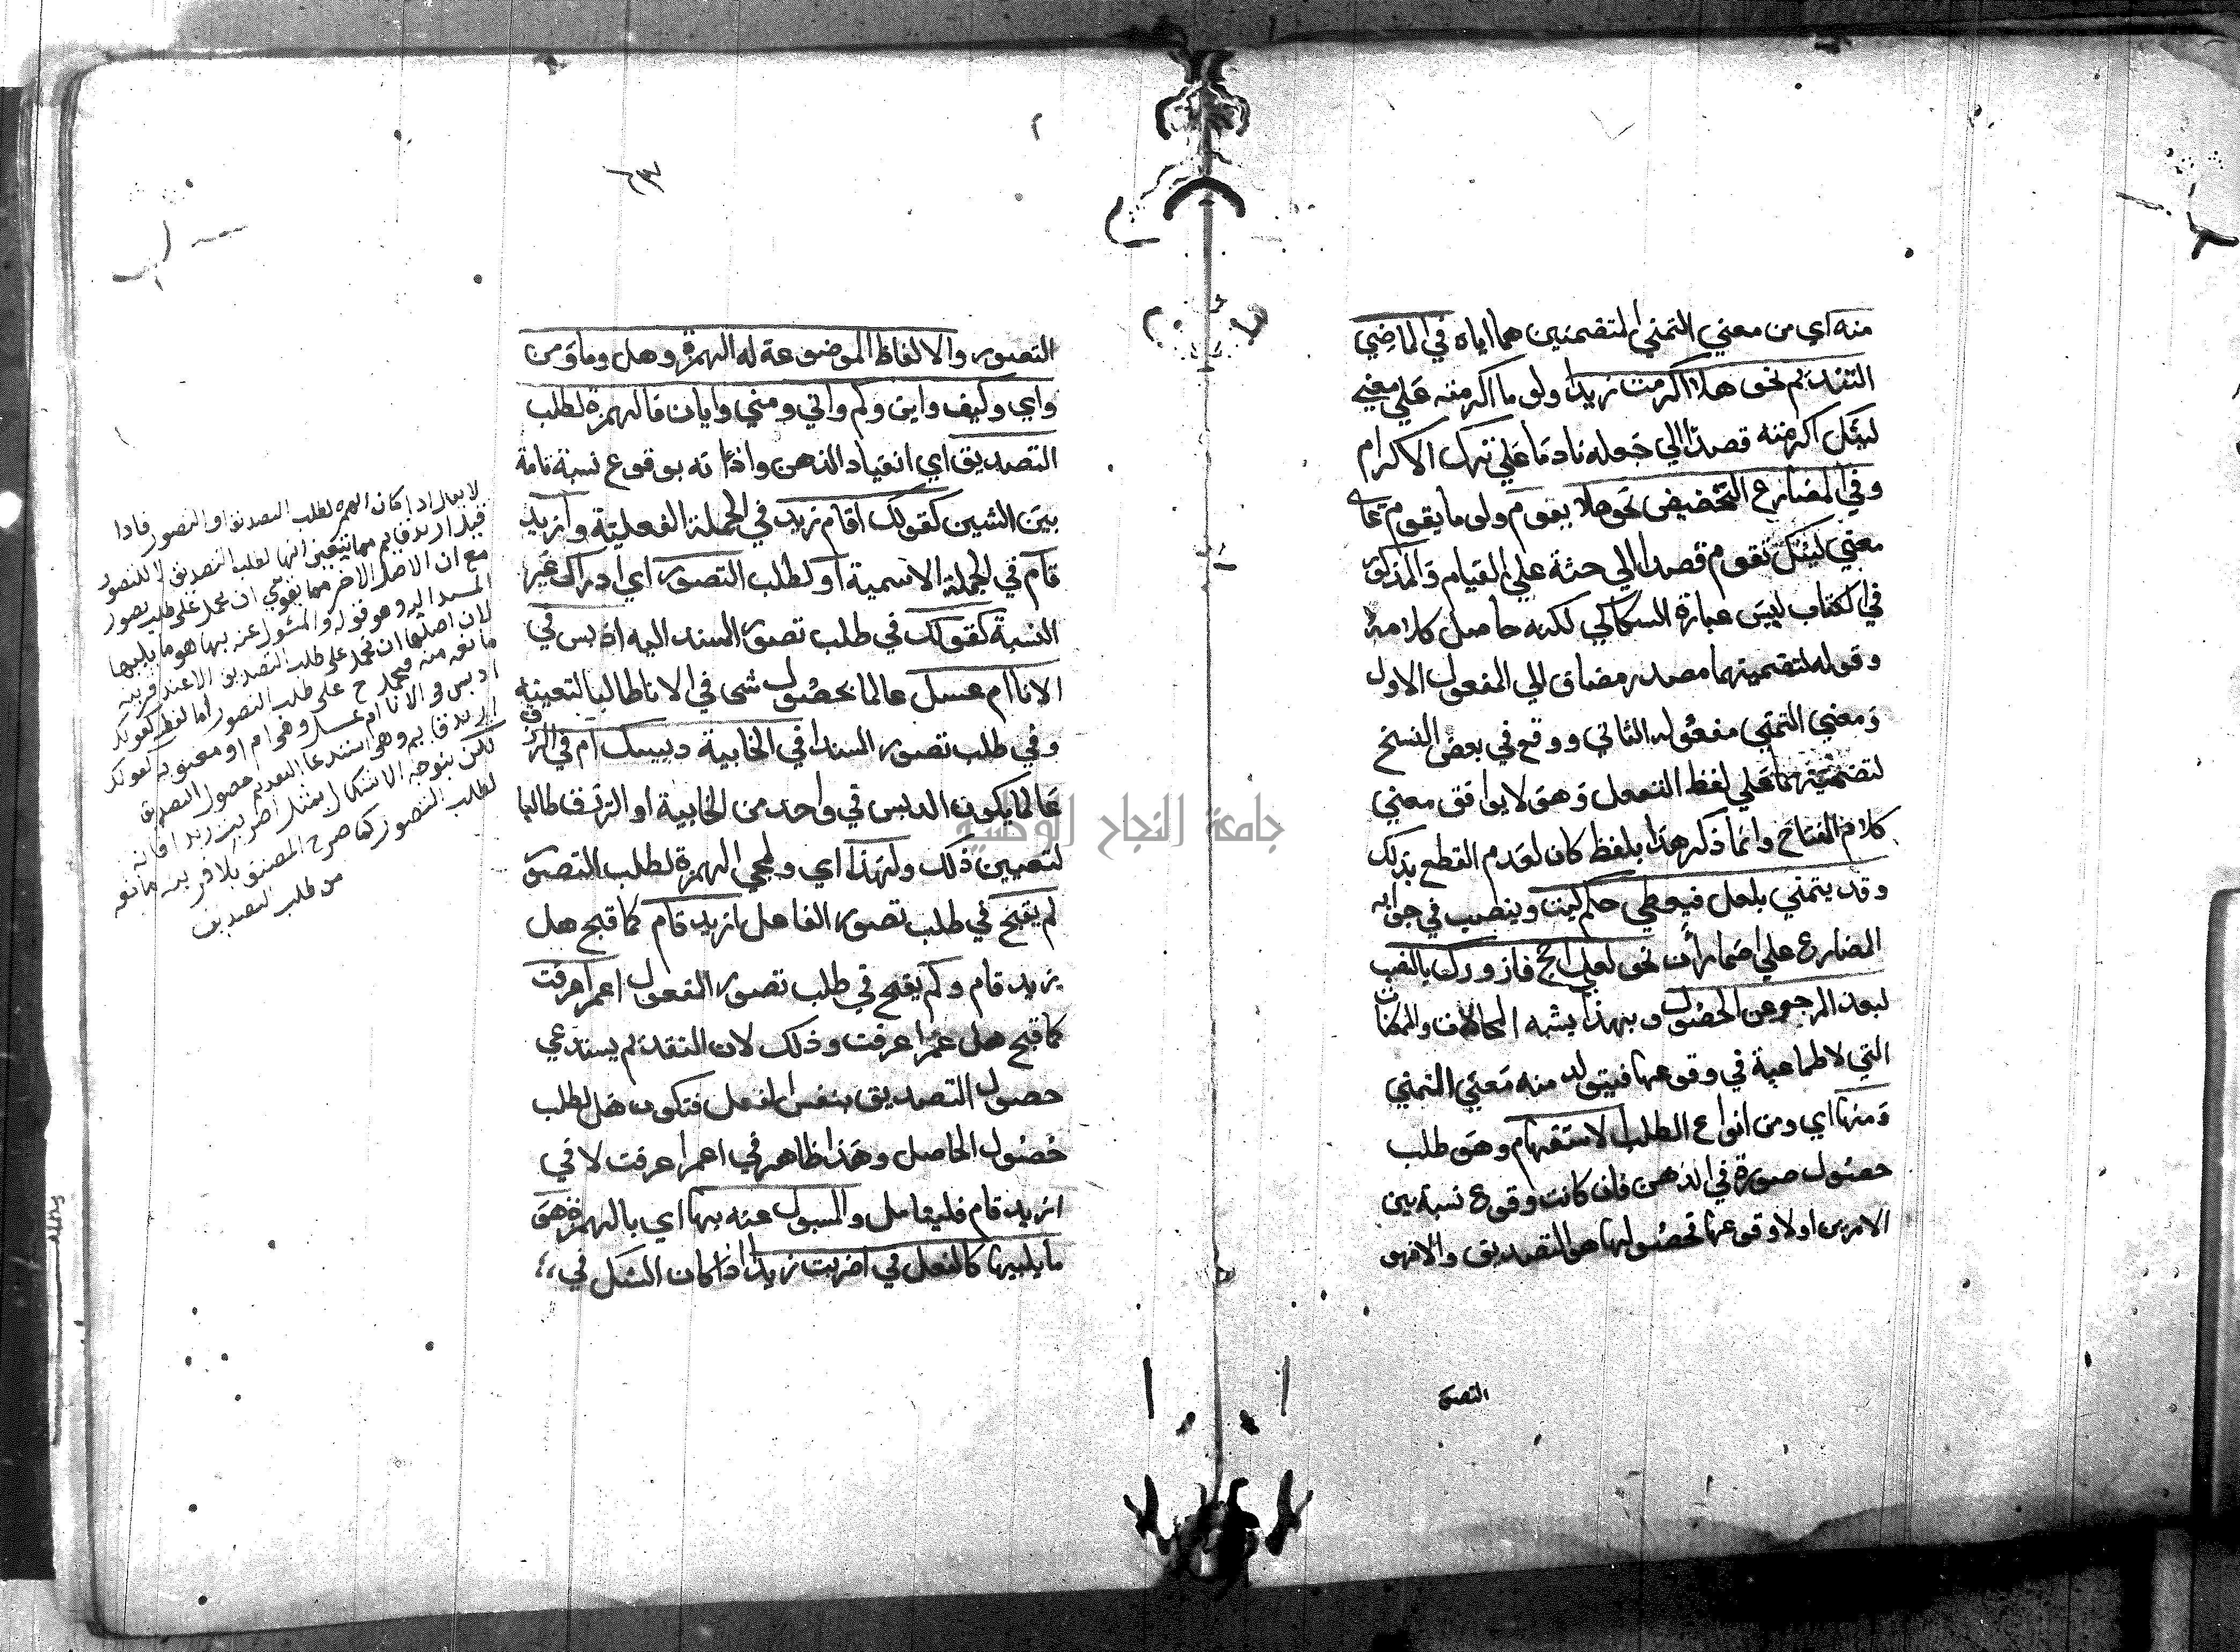 منه اي من معني التمني المتضمنين هما اياه في الماضي
التنديم نحو هلا اكرمت زيدا ولو ما اكرمته علي معني
ليتك اكرمته قصدا الي جعله نادما علي ترك الاكرام
وفي المضارع التحضيض نحو هلا يقوم ولو ما يقوم علي
معني ليتك تقوم قصدا الي حثه علي القيام والمذكور
في الكتاب ليس عبارة السكاكي لكنه حاصل كلامه
وقوله لتضمينهما مصدر مضاف الي المفعول الاول
ومعني التمني مفعوله الثاني ووقع في بعض النسخ
لتضمنهما علي لفظ التفعل وهو لا يوافق معني
كلام المفتاح وانما ذكر هذا بلفظ كان لعدم القطع بذلك
وقد يتمني بلعل فيعطي حكم ليت وينصب في جوابه
المضارع علي اضمار أن نحو لعلي احج فازورك بالنصب
لبعد المرجو عن الحصول وبهذا يشبه المحالات والممكنات
التي لا طماعية في وقوعها فيتولد منه معني التمني
ومنها اي ومن انواع الطلب الاستفهام وهو طلب
حصول صورة في الذهن فان كانت وقوع نسبة بين
الامرين او لا وقوعها فحصولها هو التصديق والا فهو
التصور
٦٣
التصور والالفاظ الموضوعة له الهمزة وهل وما ومن
واي وكيف واين وكم واني ومتي وايان فالهمزة لطلب
التصديق اي انقياد الذهن واذعانه بوقوع نسبة تامة
بين الشيين كقولك اقام زيد في الجملة الفعلية وازيد
قام في الجملة الاسمية او لطلب التصور اي ادراك غير
النسبة كقولك في طلب تصور المسند اليه ادبس في
الانا ام عسل عالما بحصول شي في الانا طالبا لتعيينه
وفي طلب تصور المسند افي الخابية دبسك ام في الزق
عالما بكون الدبس في واحد من الخابية او الزق طالبا
لتعيين ذلك ولهذا اي ولمجي الهمزة لطلب التصور
لم يقبح في طلب تصور الفاعل ازيد قام كما قبح هل
زيد قام ولم يقبح في طلب تصور المفعول اعمرا عرفت
كما قبح هل عمرا عرفت وذلك لان التقديم يستدعي
حصول التصديق بنفس الفعل فتكون هل لطلب
حصول الحاصل وهذا ظاهر في اعمرا عرفت لا في
ازيد قام فليتامل والمسول عنه بها اي بالهمزة هو
ما يليها كالفعل في اضربت زيدا اذا كان الشك في
لا يقال اذا كان الهمزة لطلب التصديق او التصور فاذا
قيل ازيد قايم مما يتعين انها لطلب التصديق لا للتصور
مع ان الاصل الاخر مما يقوي ان يحمل علي طلب تصور
المسند اليه وهو قوله والمسئول عنه بها هو ما يليها
لان اصلها ان تحمل علي طلب التصديق الا عند قرينة
مانعه منه فيحمل ح علي طلب التصور اما لفظية كقولك
ادبس في الانا ام عسل وهو ام او معنوية كقولك
ازيد قايم وهو استدعا التقديم حصول التصديق
لكن يتوجه الاشكال بمثل اضربت زيدا فانه
لطلب التصور كما صرح المصنف بلا قرينة مانعه
من طلب التصديق
جامعة النجاح الوطنية